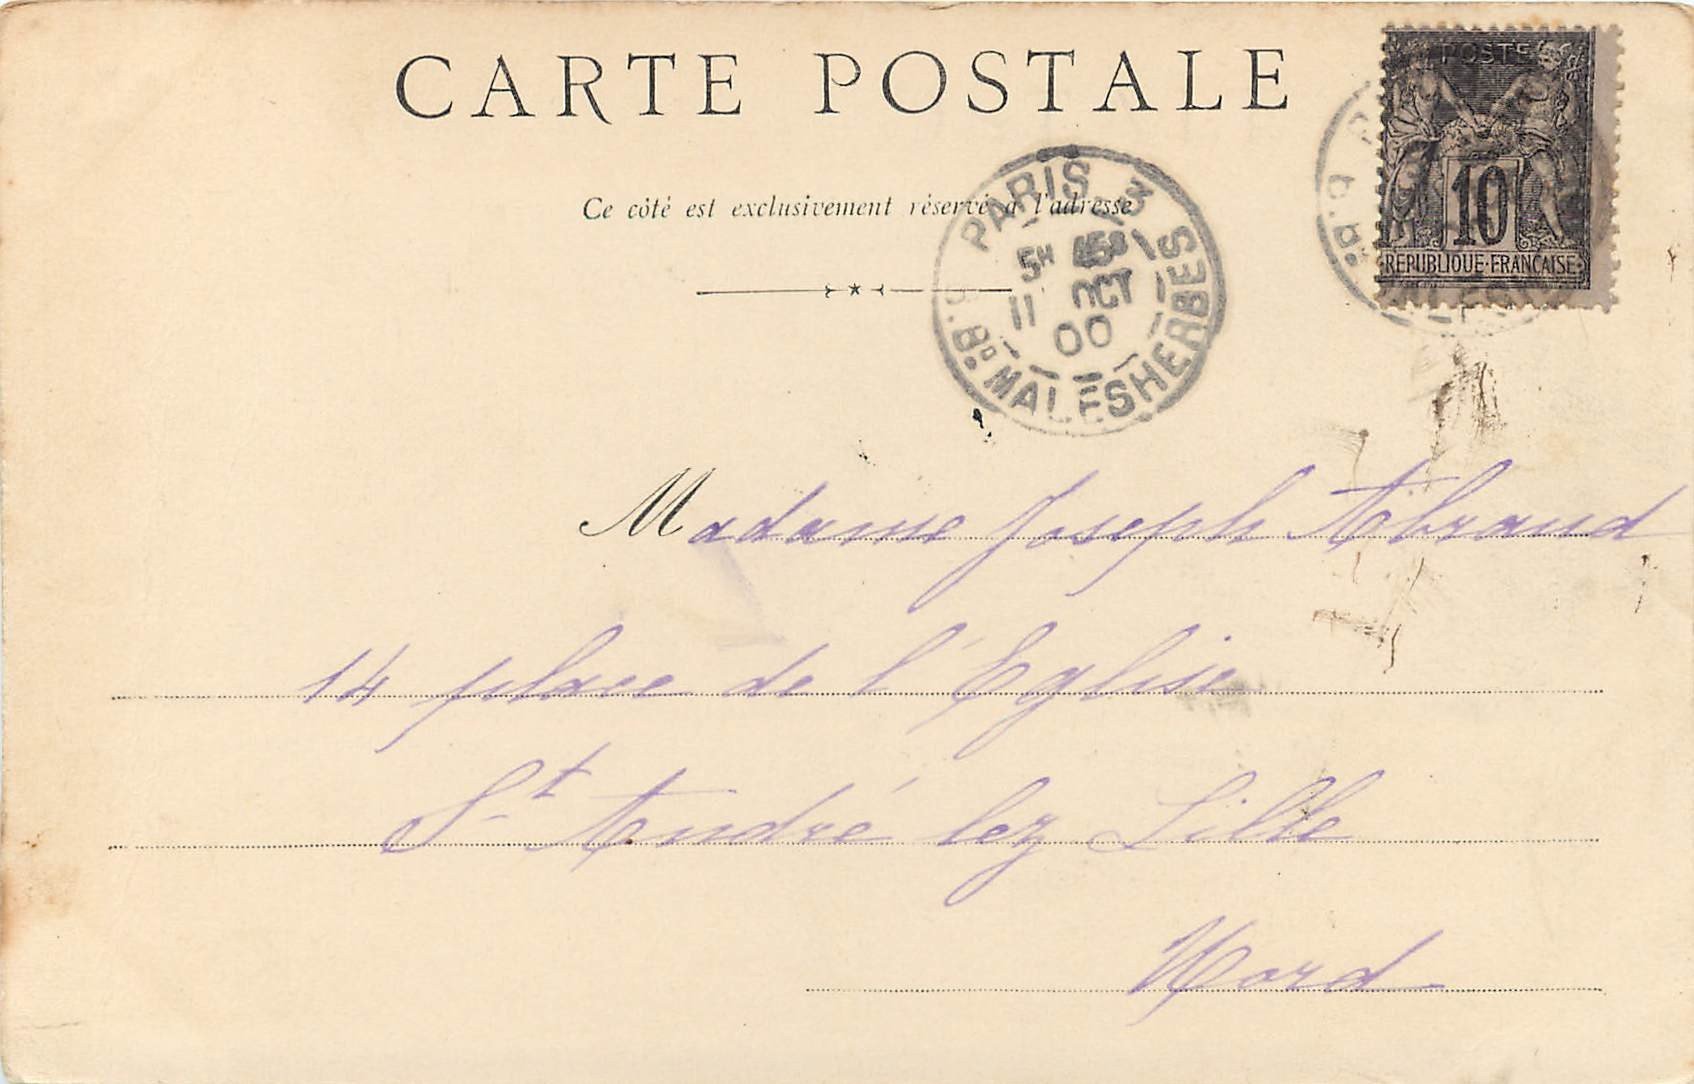 CARTE POSTALE
POSTE
10
REPUBLIQUE·FRANCAISE
Ce côté est exclusivement réservé à l'adresse
PARIS 13
5H
11 OCT
00
B.D MALESHERBES
Madame Joseph Abraud
14 place de l'Eglise
St André lez Lille
Nord